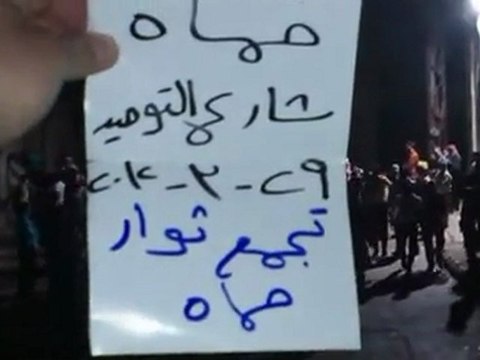 حماه
شارع التوحيد
٢٩-٣-٢٠١٢
تجمع ثوار
حماه